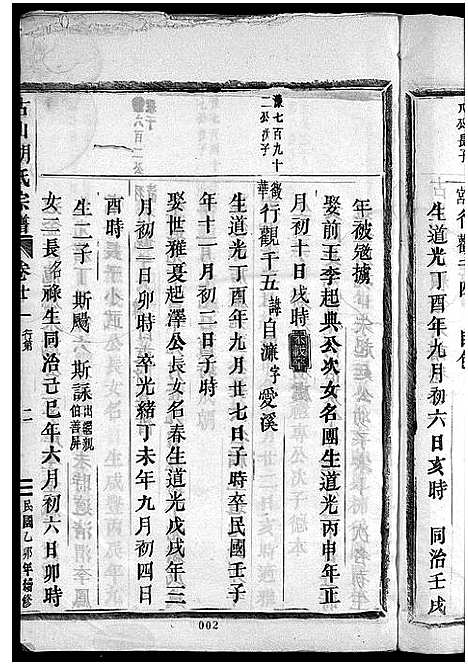 生道光丁酉年九月初六日亥時 同治壬戌
年被冦擄
娶前王李起典公次女名團生道光丙申年正
月初十日戌時
濂七百九十
二公次子
徵華
行觀千五 諱自濂 字愛溪
生道光丁酉年九月廿七日子時卒民國壬子
年十一月初二日子時
娶世雅夏起澤公長女名春生道光戊戌年三
月初一日卯時卒光緒丁未年九月初四日
酉時
生二子 斯颺 斯詠 出繼親
伯善屏
女三長名祿生同治己巳年六月初六日卯時
古山胡氏宗譜 卷廿一 行第 二 民國乙卯年編修
002